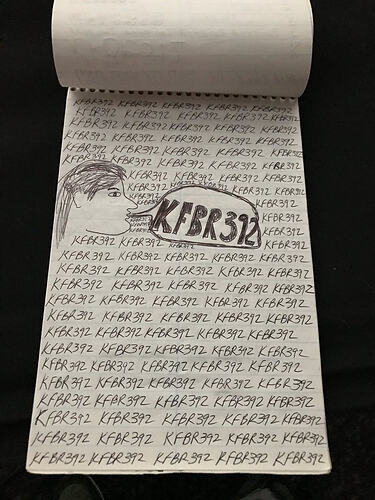 KFBR392 KFBR392 KFBR392 KFBR392 KFBR392
KFBR392 KFBR392 KFBR392 KFBR392 KFBR392
KFBR392 KFBR392 KFBR392 KFBR392 KFBR392
KFBR392 KFBR392 KFBR392 KFBR392 KFBR392
KFBR392 KFBR392 KFBR392 KFBR392 KFBR392
KFBR392 KFBR392 KFBR392 KFBR392 KFBR392
KFBR392 KFBR392 KFBR392 KFBR392
KFBR392 KFBR392 KFBR392 KFBR392
KFBR392 KFBR392
KFBR392
KFBR392
KFBR392
KFBR392 KFBR392 KFBR392 KFBR392
KFBR392 KFBR392 KFBR392 KFBR392 KFBR392
KFBR392 KFBR392 KFBR392 KFBR392 KFBR392
KFBR392 KFBR392 KFBR392 KFBR392 KFBR392
KFBR392 KFBR392 KFBR392 KFBR392 KFBR392
KFBR392 KFBR392 KFBR392 KFBR392 KFBR392
KFBR392 KFBR392 KFBR392 KFBR392 KFBR392
KFBR392 KFBR392 KFBR392 KFBR392 KFBR392
KFBR392 KFBR392 KFBR392 KFBR392 KFBR392
KFBR392 KFBR392 KFBR392 KFBR392 KFBR392
KFBR392 KFBR392 KFBR392 KFBR392 KFBR392
KFBR392 KFBR392 KFBR392 KFBR392 KFBR392
KFBR392 KFBR392 KFBR392 KFBR392 KFBR392
KFBR392 KFBR392 KFBR392 KFBR392 KFBR392